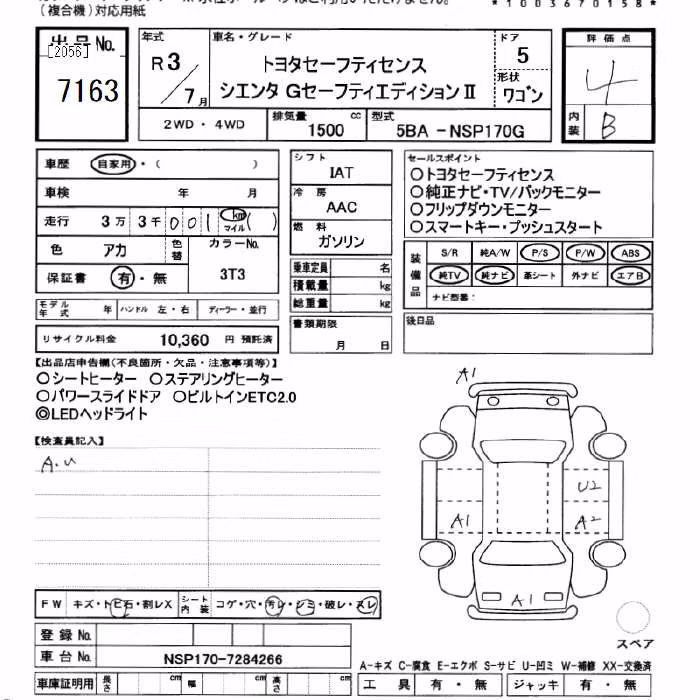 (複合機)対応用紙
*1003670158*
出品No.
[2056]
7163
年式
R3/7月
車名・グレード
トヨタセーフティセンス
シエンタ GセーフティエディションⅡ
ドア
5
形状
ワゴン
評価点
4
内装
B
2WD・4WD
排気量
1500
cc
型式
5BA-NSP170G
車歴
自家用・( )
車検
年 月
走行
3万 3千 001 km マイル ( )
色
アカ
色替
カラーNo.
3T3
保証書
有・無
モデル年式
年
ハンドル 左・右
ディーラー・並行
リサイクル料金
10,360 円 預託済
シフト
IAT
冷房
AAC
燃料
ガソリン
乗車定員
名
積載量
kg
総重量
kg
書類期限
月 日
セールスポイント
○トヨタセーフティセンス
○純正ナビ・TV/バックモニター
○フリップダウンモニター
○スマートキー・プッシュスタート
装備品
S/R 純A/W P/S P/W ABS
純TV 純ナビ 革シート 外ナビ エアB
ナビ型番:
後日品
【出品店申告欄(不良箇所・欠品・注意事項等)】
○シートヒーター ○ステアリングヒーター
○パワースライドドア ○ビルトインETC2.0
◎LEDヘッドライト
【検査員記入】
A.U
A1
U2
A1
A2
A1
スペア
FW
キズ・トビ石・割レX
シート内装
コゲ・穴・汚レ・シミ・破レ・スレ
登録No.
車台No.
NSP170-7284266
車庫証明用
長さ
cm
幅
cm
高さ
cm
A-キズ C-腐食 E-エクボ S-サビ U-凹ミ W-補修 XX-交換済
工具
有・無
ジャッキ
有・無